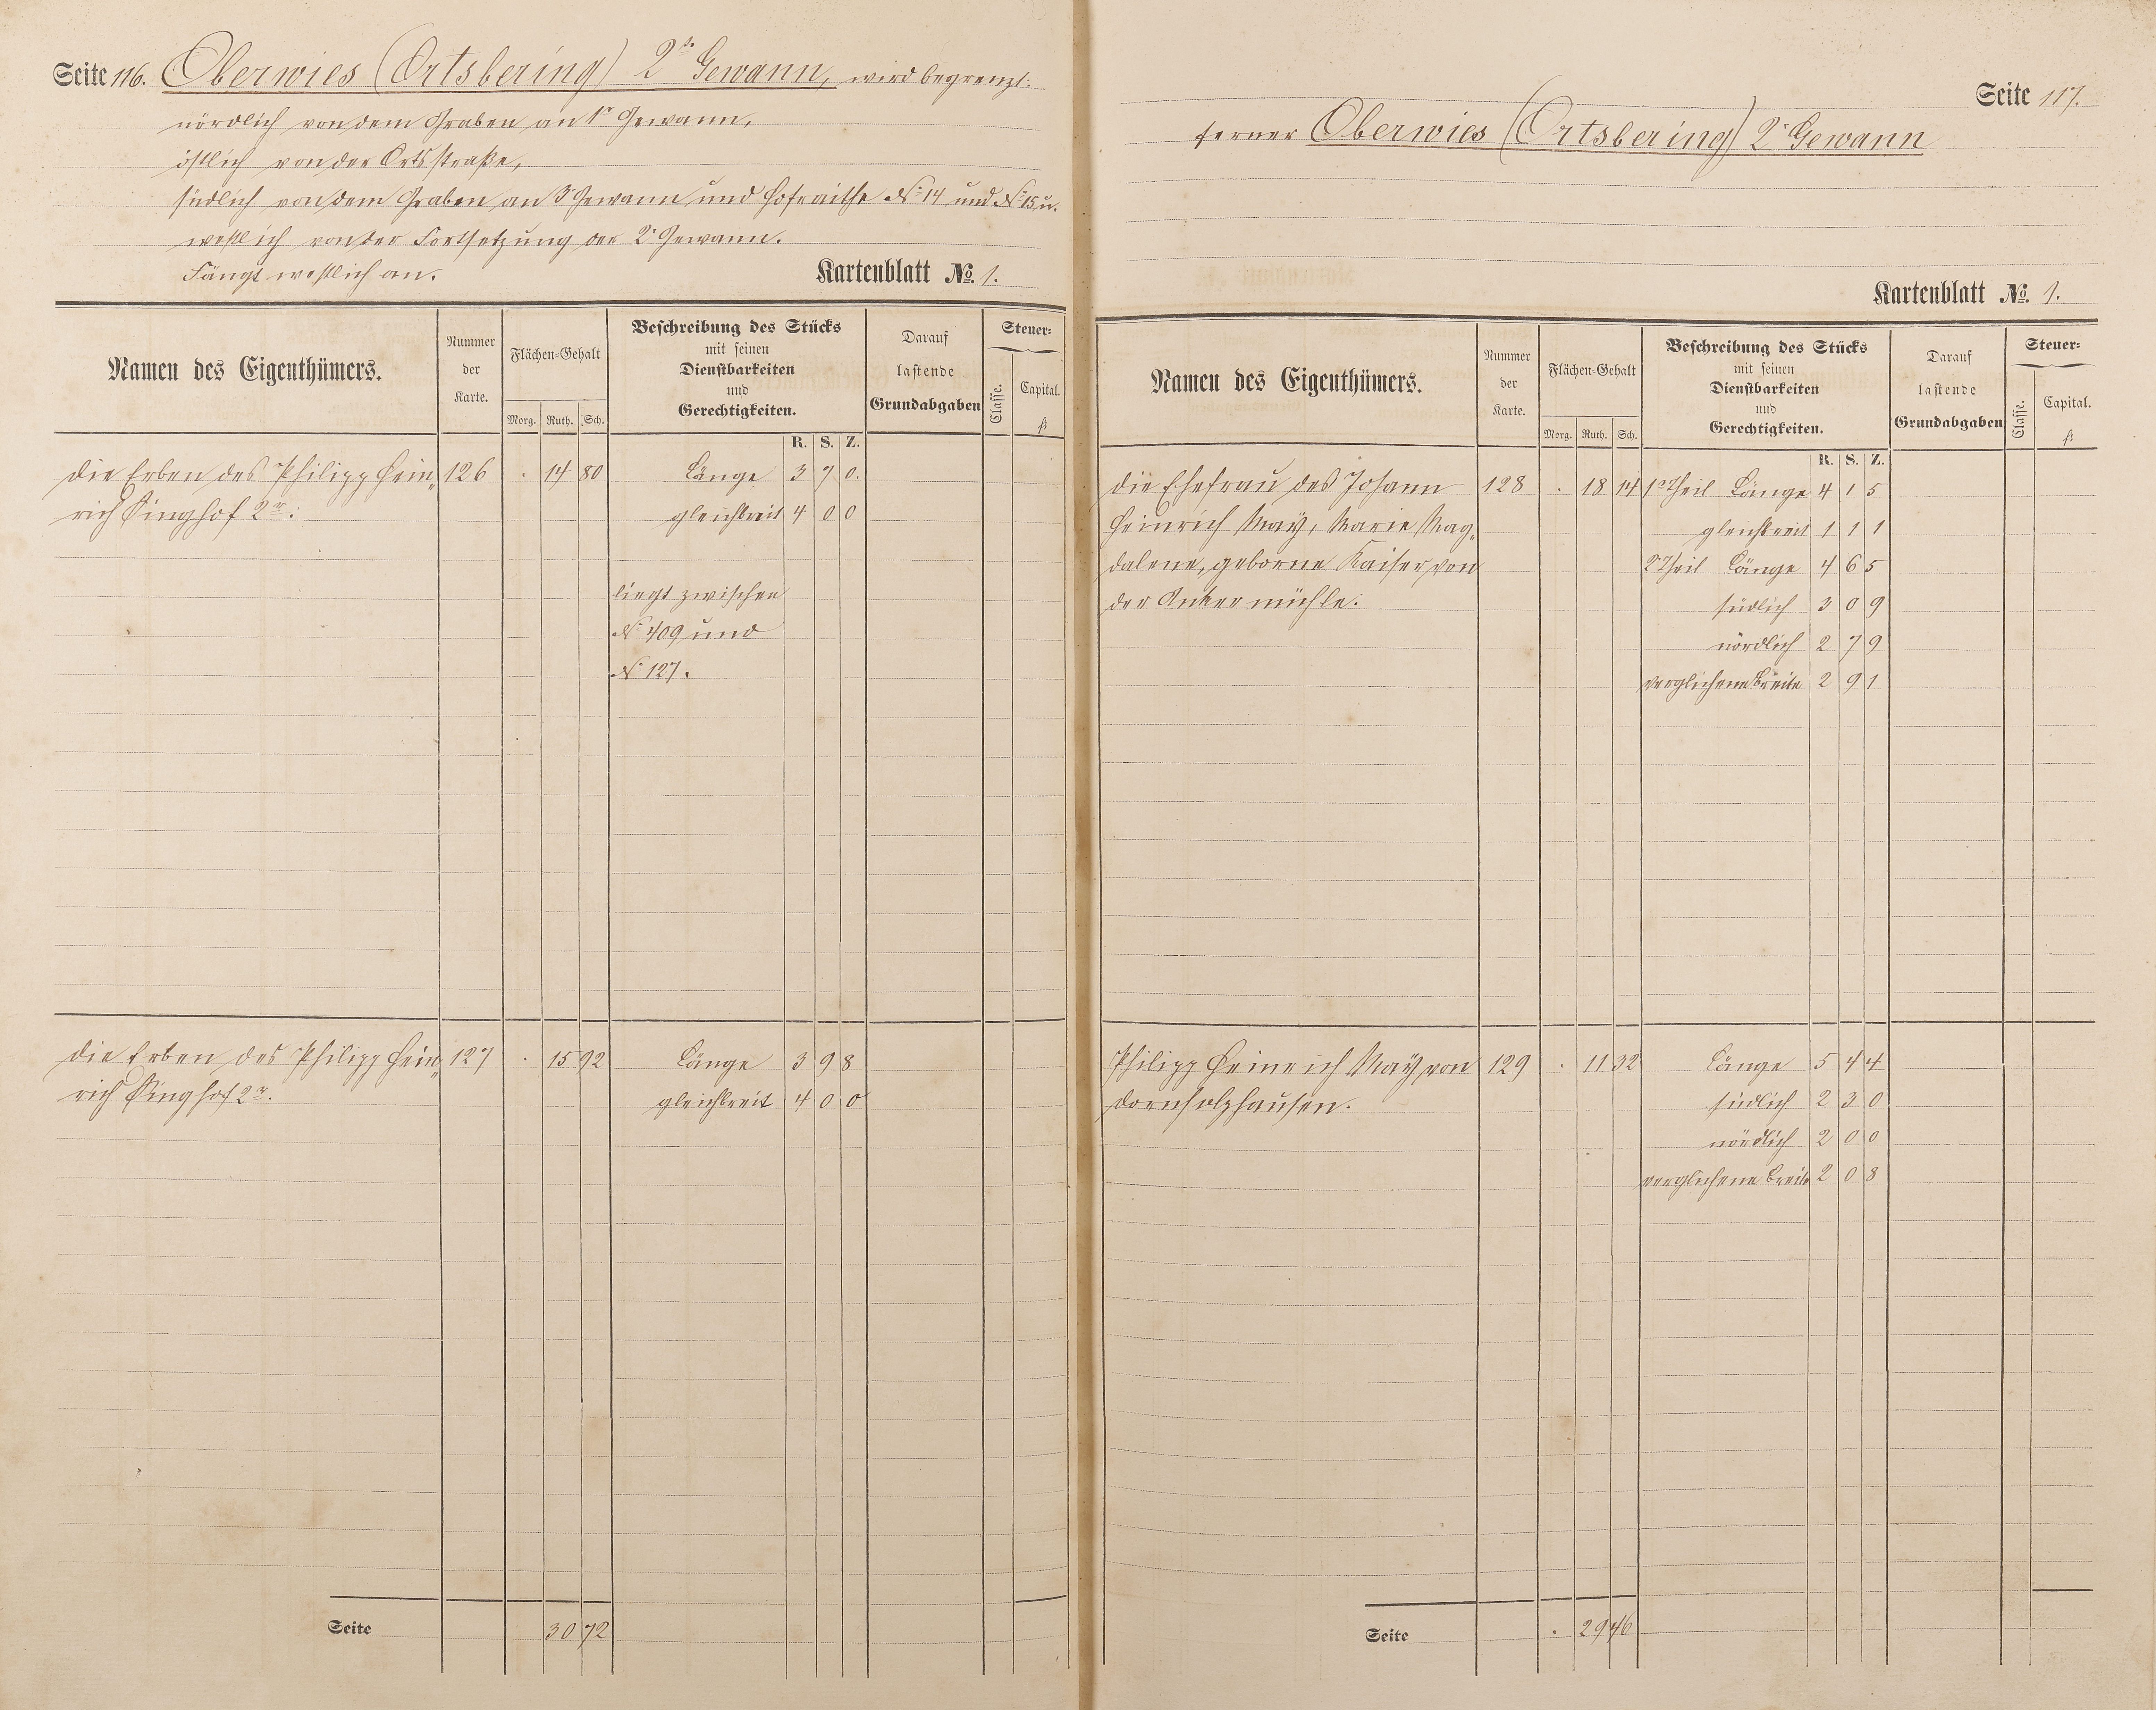 Seite 116. Oberwies (Ortsbering) 2te Gewann, wird begrenzt:
nördlich von dem Graben an 1r Gewann,
östlich von der Ortsstraße,
südlich von dem Graben an 3r Gewann und Hofraithe No 14 und No 15 u.
westlich von der Fortsetzung der 2r Gewann.
Fängt westlich an.
Kartenblatt No. 1.
Namen des Eigenthümers.
Nummer
der
Karte.
Flächen-Gehalt
Morg. Ruth. Sch.
Beschreibung des Stücks
mit seinen
Dienstbarkeiten
und
Gerechtigkeiten.
Darauf
lastende
Grundabgaben
Steuer-
Classe. Capital.
fl
R. S. Z.
Die Erben des Philipp Hein„ 126 . 14 80 Länge 3 7 0.
rich Singhof 2r. gleichbreit 4 0 0
liegt zwischen
No 409 und
No 127.
Die Erben des Philipp Hein„ 127 . 15 92 Länge 3 9 8
rich Singhof 2r. gleichbreit 4 0 0
Seite 30 72
Seite 117.
ferner Oberwies (Ortsbering) 2r Gewann
Kartenblatt No. 1.
Namen des Eigenthümers.
Nummer
der
Karte.
Flächen-Gehalt
Morg. Ruth. Sch.
Beschreibung des Stücks
mit seinen
Dienstbarkeiten
und
Gerechtigkeiten.
Darauf
lastende
Grundabgaben
Steuer-
Classe. Capital.
fl
R. S. Z.
Die Ehefrau des Johann 128 . 18 14 1r Theil Länge 4 1 5
Heinrich Maÿ, Marie Mag„ gleichbreit 1 1 1
dalene, geborne Kaiser von 2r Theil Länge 4 6 5
der Ankermühle. südlich 3 0 9
nördlich 2 7 9
verglichene Breite 2 9 1
Philipp Heinrich Maÿ von 129 . 11 32 Länge 5 4 4
Dornholzhausen. südlich 2 3 0
nördlich 2 0 0
verglichene Breite 2 0 8
Seite . 29 46